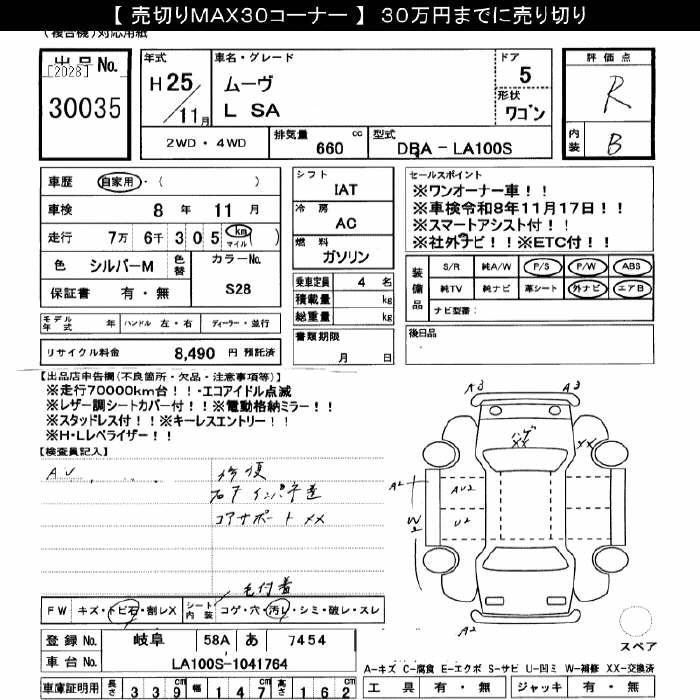 【 売切りMAX30コーナー 】 30万円までに売り切り
(複合機)対応用紙
出品No.
[2028]
30035
年式
H25
11月
車名・グレード
ムーヴ
L SA
ドア
5
形状
ワゴン
2WD・4WD
排気量 cc
660
型式
DBA - LA100S
評価点
R
内装
B
車歴 自家用・( )
車検 8年 11月
走行 7万 6千 305 km マイル ( )
色 シルバーM 色替
カラーNo.
S28
保証書 有・無
シフト
IAT
冷房
AC
燃料
ガソリン
乗車定員 4 名
積載量 kg
総重量 kg
書類期限
月 日
セールスポイント
※ワンオーナー車！！
※車検令和8年11月17日！！
※スマートアシスト付！！
※社外ナビ！！※ETC付！！
装備品
S/R 純A/W P/S P/W ABS
純TV 純ナビ 革シート 外ナビ エアB
ナビ型番:
後日品
モデル年式 年 ハンドル 左・右 ディーラー・並行
リサイクル料金 8,490 円 預託済
【出品店申告欄(不良箇所・欠品・注意事項等)】
※走行70000km台！！・エコアイドル点滅
※レザー調シートカバー付！！※電動格納ミラー！！
※スタッドレス付！！※キーレスエントリー！！
※H・Lレベライザー！！
【検査員記入】
AU
修復
右Fインパネ違
コアサポート XX
毛付着
A3 A3
ハゲ
XX
XX
A2
AU2
W2
U2
A2
スペア
FW キズ・トビ石・割レX
シート内装 コゲ・穴・汚レ・シミ・破レ・スレ
登録No. 岐阜 58A あ 7454
車台No. LA100S-1041764
車庫証明用 長さ 339cm 幅 147cm 高さ 162cm
A-キズ C-腐食 E-エクボ S-サビ U-凹ミ W-補修 XX-交換済
工具 有・無 ジャッキ 有・無